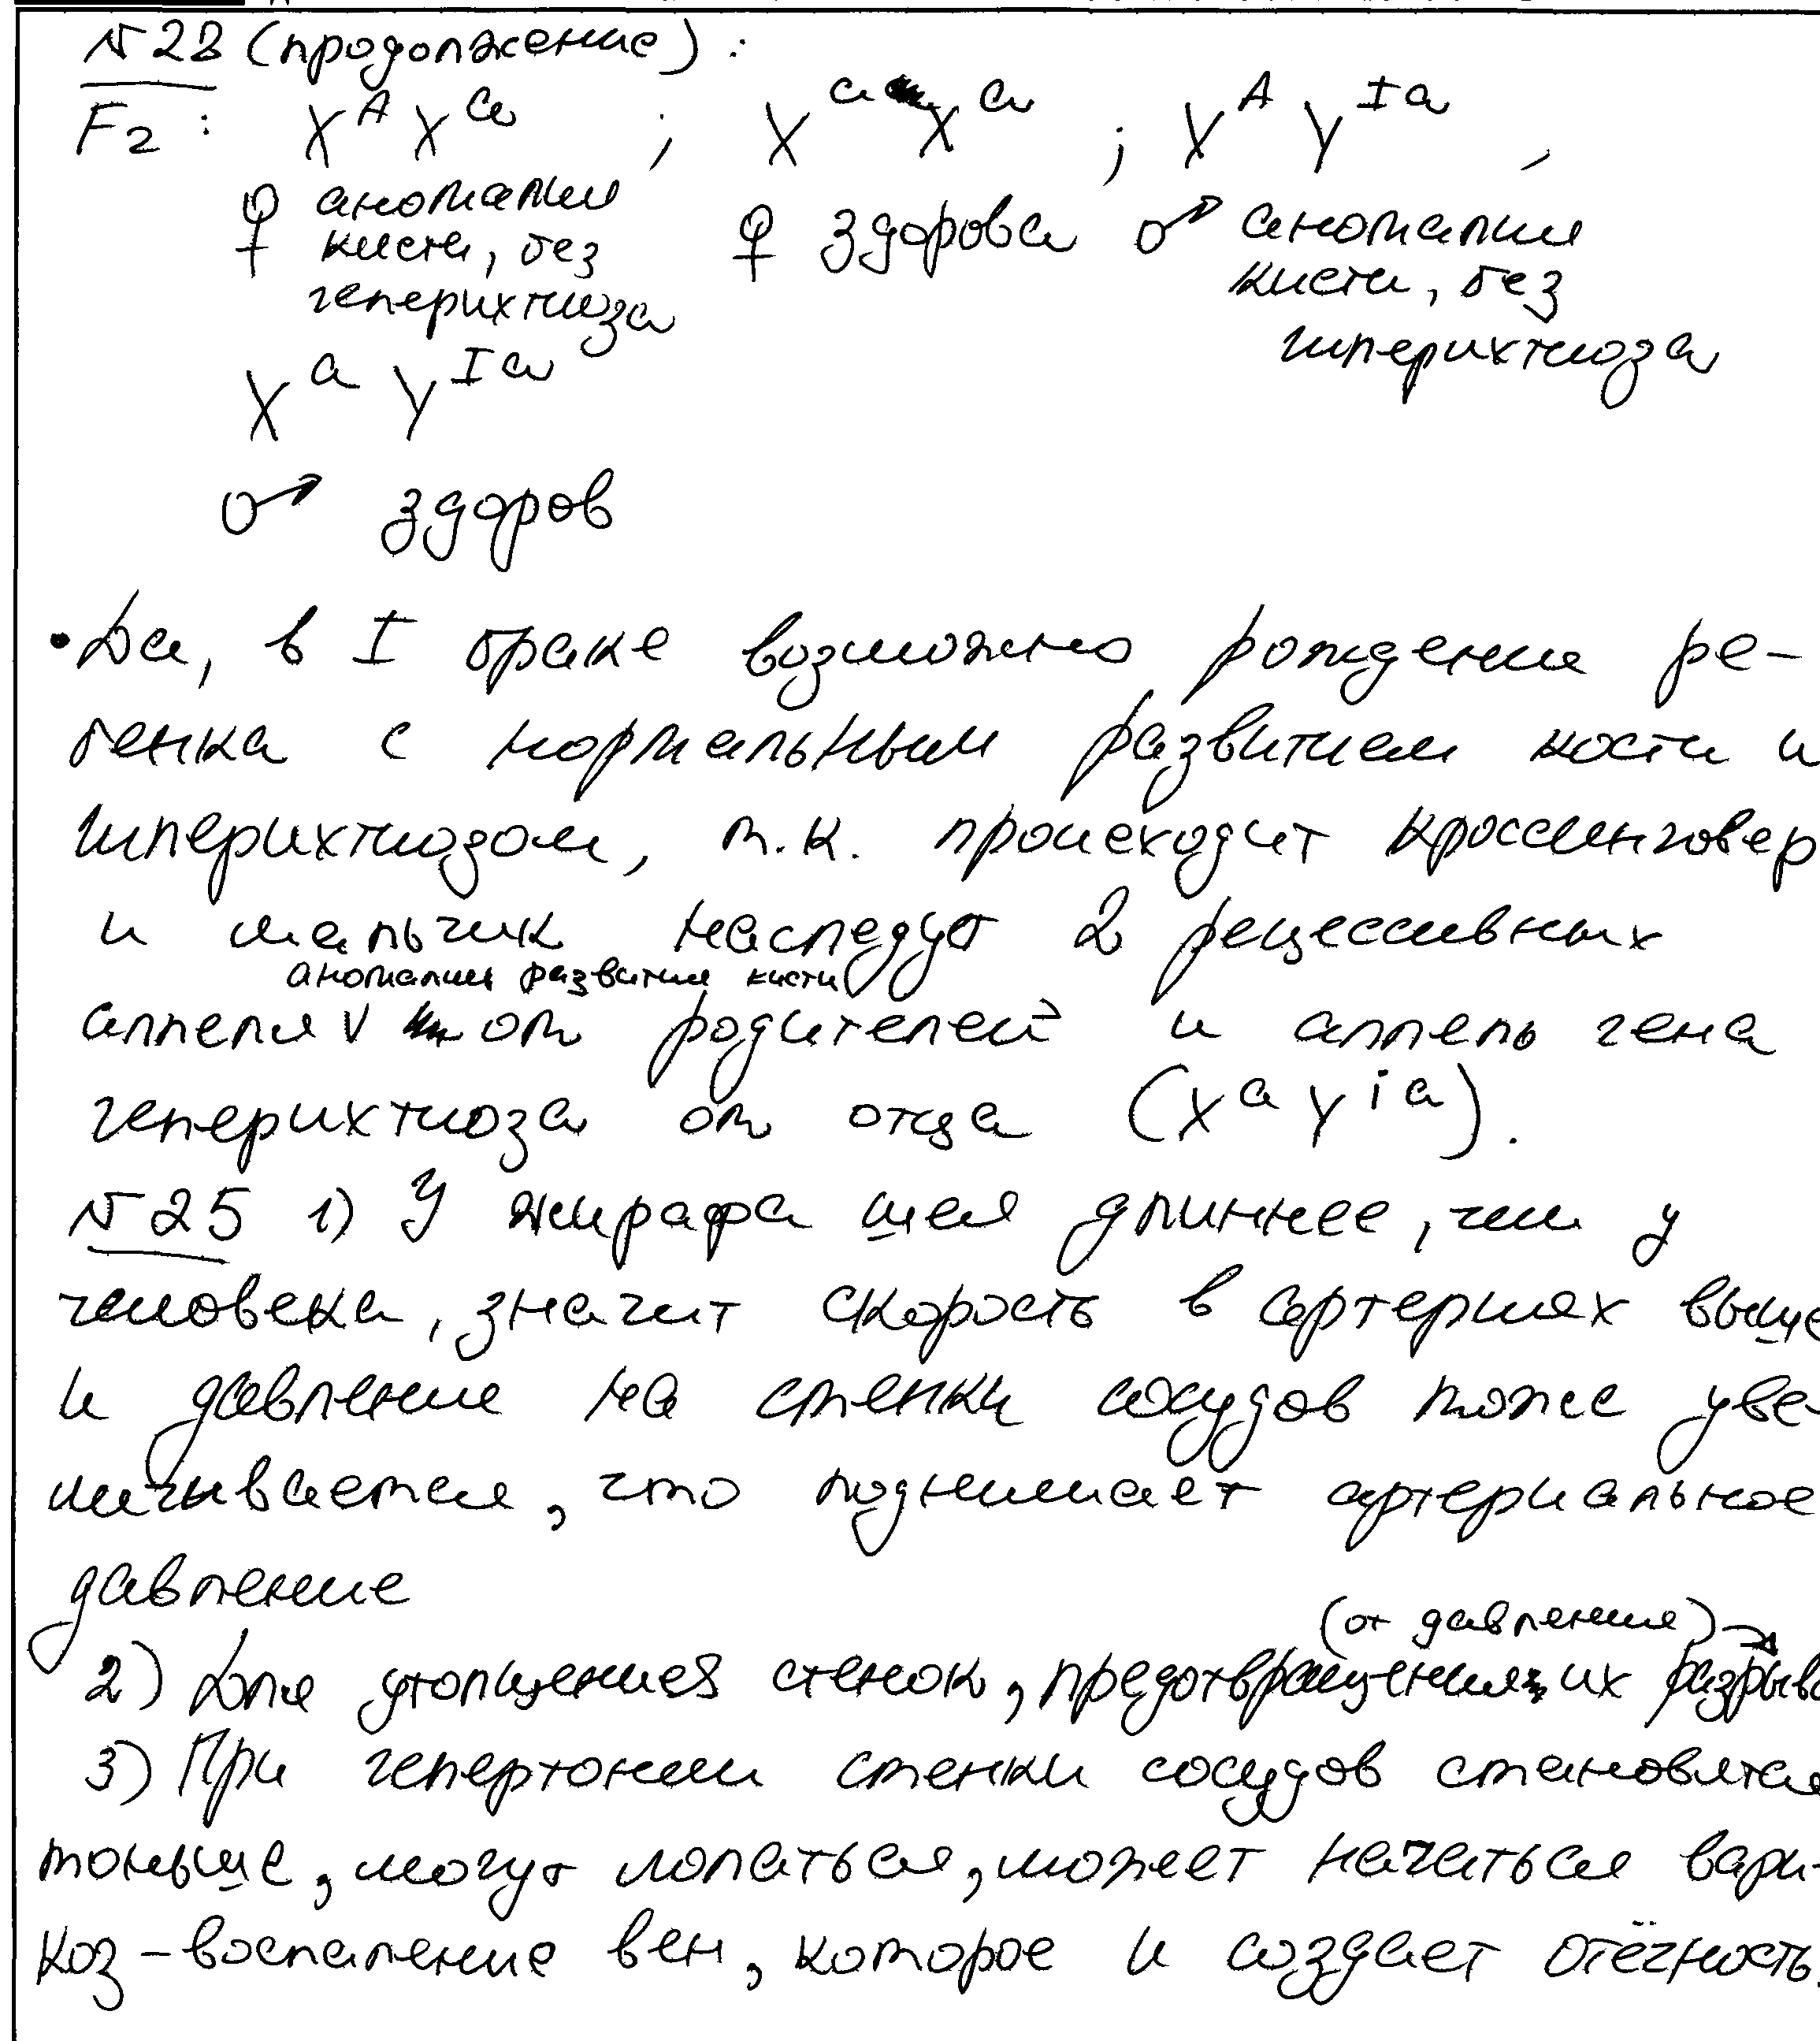 N28 (продолжение):
F2: X^A X^a ; X^a X^a ; X^A Y^Ia ,
♀ аномалии кисти, без геперихтиоза ♀ здорова ♂ аномалии кисти, без гиперихтиоза
X^a Y^Ia
♂ здоров
• Да, в I браке возможно рождении ре-
бенка с нормальным развитием кости и
гиперихтиозом, т.к. происходит кроссинговер
и мальчик наследует 2 рецессивных
аномалии развития кисти
аллеля V от родителей и аллель гена
геперихтиоза от отца (X^a Y^ia).
N25 1) У жирафа шея длиннее, чем у
человека, значит скорость в артериях выше
и давление на стенки сосудов тоже уве-
личивается, что поднимает артериальное
давление
(от давления)
2) Для утолщения стенок, предотвращения их разрыва
3) При гепертонии стенки сосудов становятся
тоньше, могут лопаться, может начаться вари-
коз - воспаление вен, которое и создает отёчность.